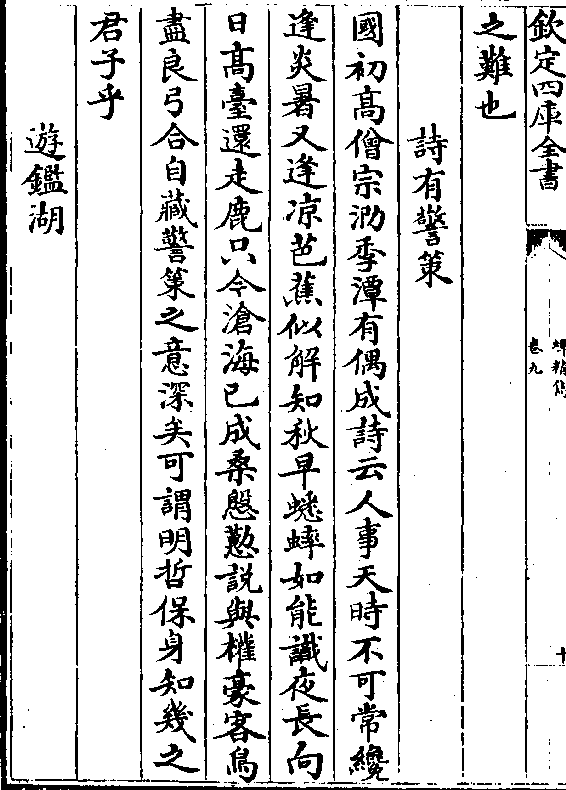 欽定四庫全書
蟬精雋
卷九
之難也
詩有警策
國初高僧宗泐季潭有偶成詩云人事天時不可常纔
逢炎暑又逢凉芭蕉似解知秋早蟋蟀如能識夜長向
日高臺還走鹿只今滄海已成桑慇懃說與權豪客鳥
盡良弓合自藏警策之意深矣可謂明哲保身知幾之
君子乎
遊鑑湖